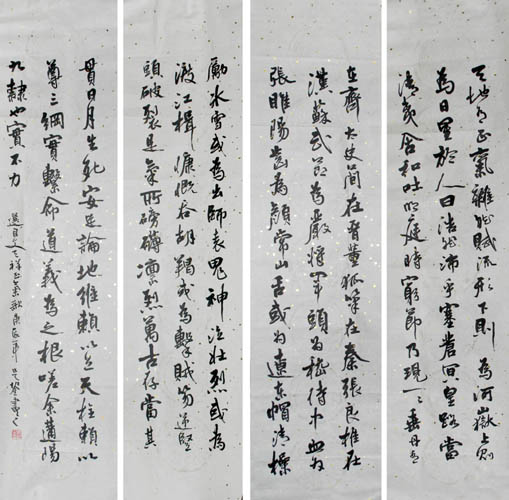 天地有正氣雜然賦流形下則為河嶽上則
為日星於人曰浩然沛乎塞蒼冥皇路當
清夷含和吐明庭時窮節乃現一一垂丹青
在齊太史簡在晉董狐筆在秦張良椎在
漢蘇武節為嚴將軍頭為嵇侍中血為
張睢陽齒為顏常山舌或為遼東帽清操
勵冰雪或為出師表鬼神泣壯烈或為
渡江楫慷慨吞胡羯或為擊賊笏逆豎
頭破裂是氣所磅礴凜烈萬古存當其
貫日月生死安足論地維賴以立天柱賴以
尊三綱實繫命道義為之根嗟余遘陽
九隸也實不力
選自文天祥正氣歌